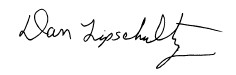 Dan Lipschultz